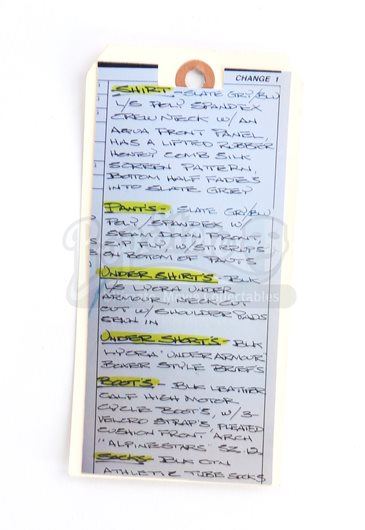 CHANGE 1
SHIRT - SLATE GRY/BLU
L/S POLY SPANDEX
CREW NECK W/ AN
AQUA FRONT PANEL,
HAS A LIFTED RUBBER
HONEY COMB SILK
SCREEN PATTERN.
BOTTOM HALF FADES
INTO SLATE GREY
PANT'S - SLATE GRY/BLU
POLY/SPANDEX W/
SEAM DOWN FRONT,
ZIP FLY, W/ STIRRUPS
ON BOTTOM OF PANTS
UNDER SHIRT'S - BLK
L/S LYCRA UNDER
ARMOUR V-NECK CUT
OUT W/ SHOULDER PADS
SEWN IN
UNDER SHORT'S - BLK
LYCRA 'UNDER ARMOUR
BOXER STYLE BRIEFS
BOOT'S - BLK LEATHER
CALF HIGH MOTOR
CYCLE BOOT'S, W/ 3-
VELCRO STRAP'S, PLEATED
CUSHION FRONT ARCH
"ALPINESTARS" SZ 12
SOCKS - BLK CTN
ATHLETIC TUBE SOCKS